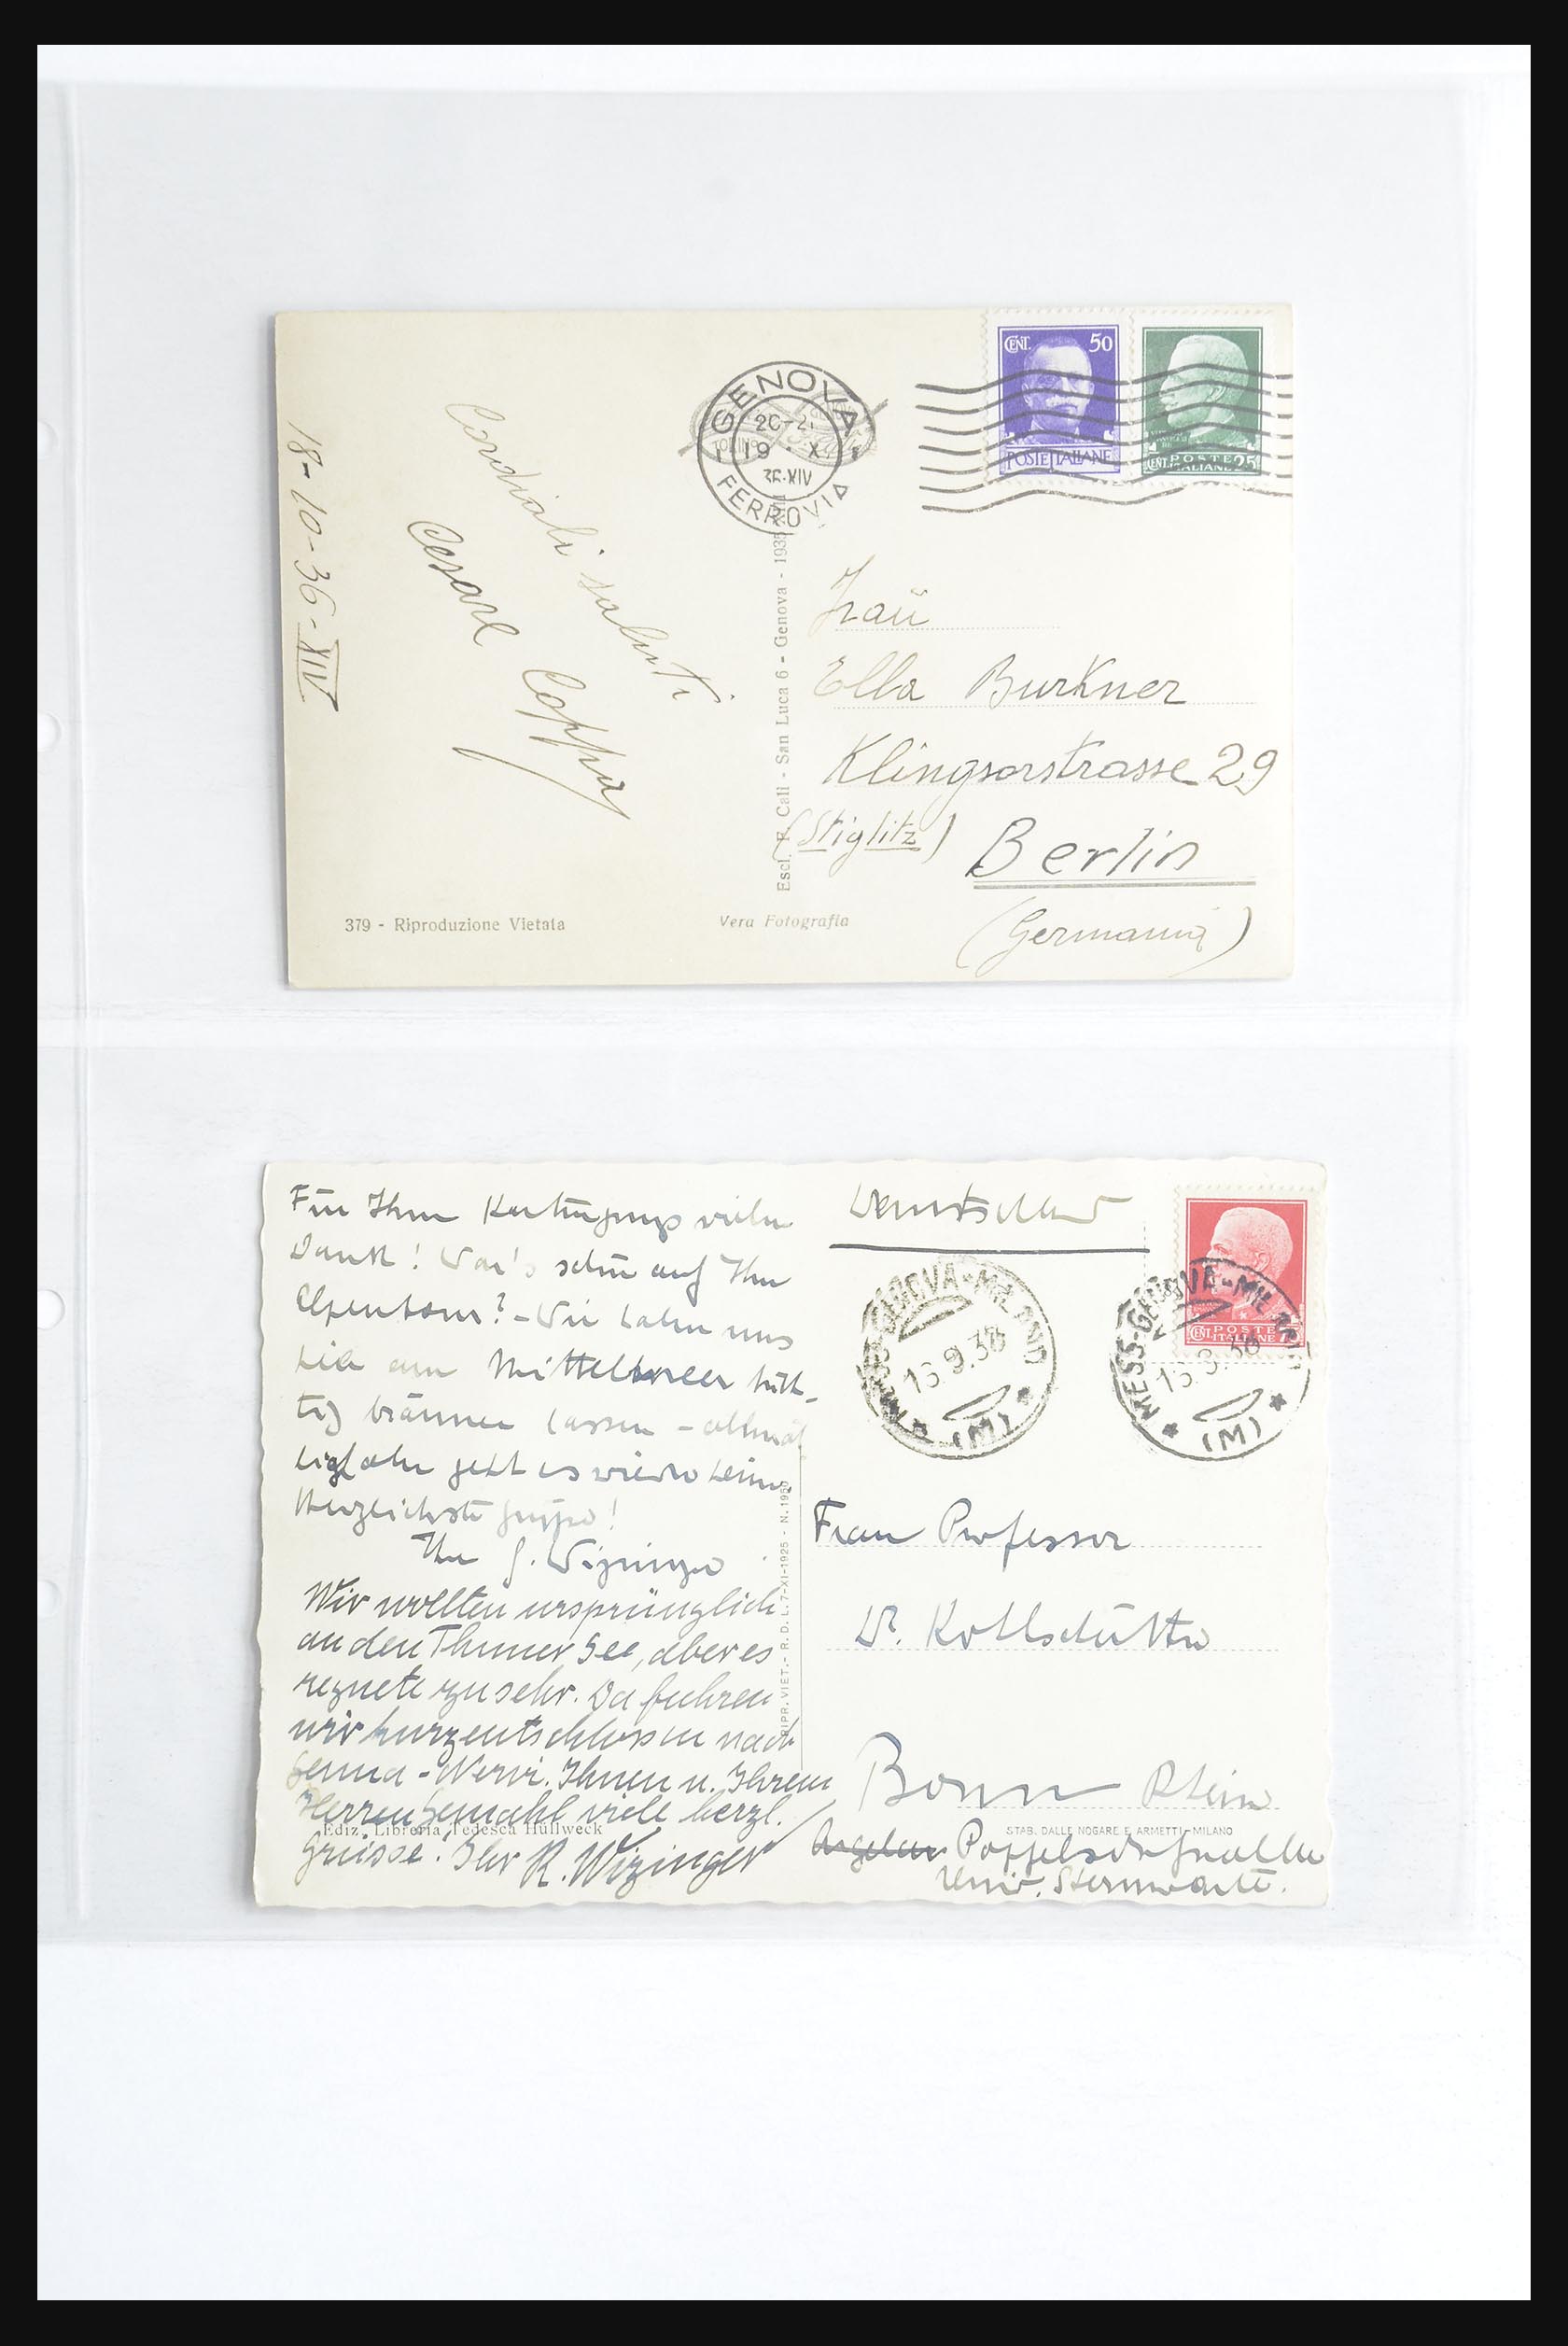 CENT. 50
POSTE ITALIANE
POSTE
CENT. ITALIANE 25
GENOVA
20-21
19 · X
36·XIV
FERROVIA
18-10-36-XIV
Cordiali saluti
Cesare Coppa
Escl. F. Calì - San Luca 6 - Genova - 1935
Frau
Ella Burkner
Klingsorstrasse 29
(Stiglitz) Berlin
(Germania)
379 - Riproduzione Vietata
Vera Fotografia
Für Ihre vielen
Dank! War's schön auf Ihrer
Alpentour? - Wir haben uns
hier am Mittelmeer tüch-
tig bräunen lassen - allmäh-
lich aber geht es wieder heim.
Herzlichste Grüsse!
Ihre Wizinger
Wir wollten ursprünglich
an den Thuner See, aber es
regnete zu sehr. Da fuhren
wir kurzentschlossen nach
Genua - Nervi. Ihnen u. Ihrem
Herren Gemahl viele herzl.
Grüsse! Ihr R. Wizinger
Ediz. Libreria Tedesca Hüllweck
RIPR. VIET. - R. D. L. 7-XI-1925 - N. 1950
Deutschland
POSTE
CENT. ITALIANE 75
MESS-GENOVA-MILANO
9.38
(M)
MESS-GENOVA-MILANO
9.38
(M)
Frau Professor
Dr. Kohlschütter
Bonn Rhein
STAB. DALLE NOGARE E ARMETTI-MILANO
Poppelsdorfer Allee
Univ. Sternwarte.